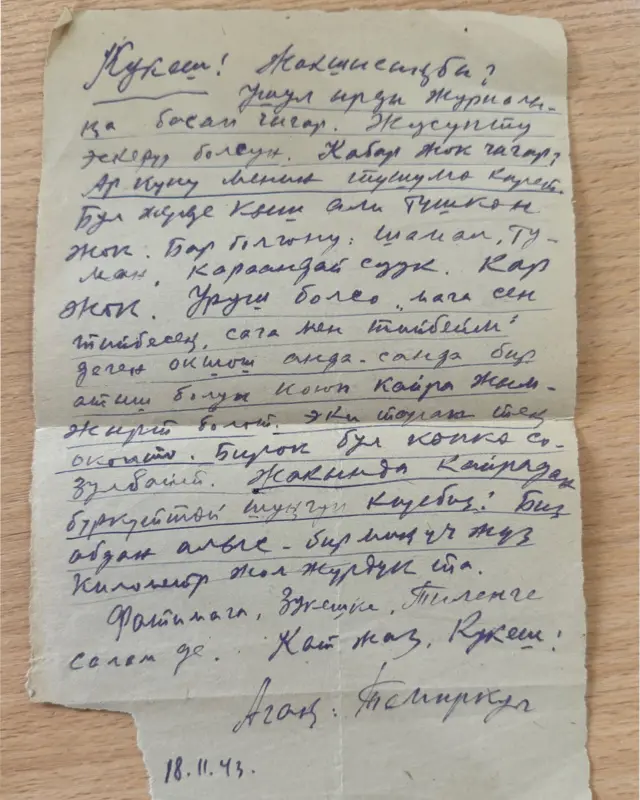 Кукеш! Жакшысыңбы?
Ушул ырды журналы-
ңа басып чыгар. Жусупту
эскерүү болсун. Кабар жок чыгар?
Ар күнү менин түшүмө кирет.
Бул жерде кыш али түшкөн
жок. Бар болгону: шамал, ту-
ман, караандай суук. Кар
жок. Уруш болсо „мага сен
тийбесең, сага мен тийбейм"
деген окшош анда-санда бир
атыш болуп коюп кайра жым-
жырт болот. Эки тарап тең
окопто. Бирок бул көпкө со-
зулбайт. Жакында кайрадан
бүркүттөй шуңгуп киребиз! Биз
абдан алыс - бир миң үч жүз
километр жол жүрдүк та.
Фатимага, Зукешке, Тиленге
салам де. Кат жаз, Кукеш!
Агаң: Темиркул
18.11.43.